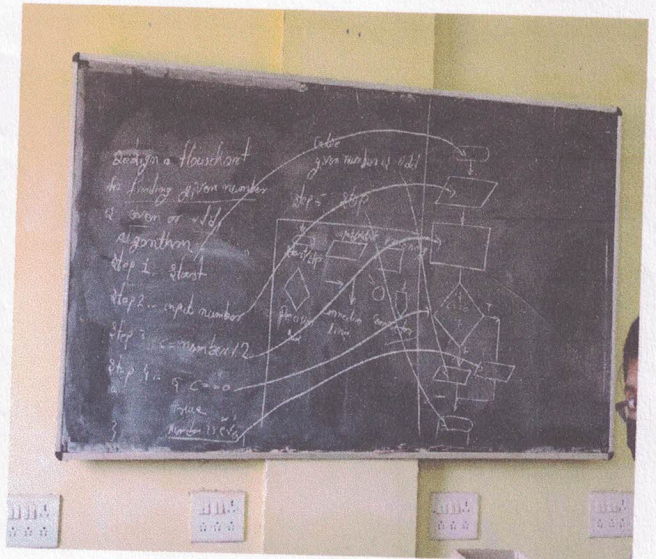 Design a flowchart
for finding given number
is even or odd
Algorithm
Step 1 - Start
Step 2 - input number
Step 3 - c = number % 2
Step 4 - if c = = 0
true
number is even
}
else
given number is odd
Step 5 - Stop
Start/Stop
input/output
Processing
Decision
Connection
line
Connector